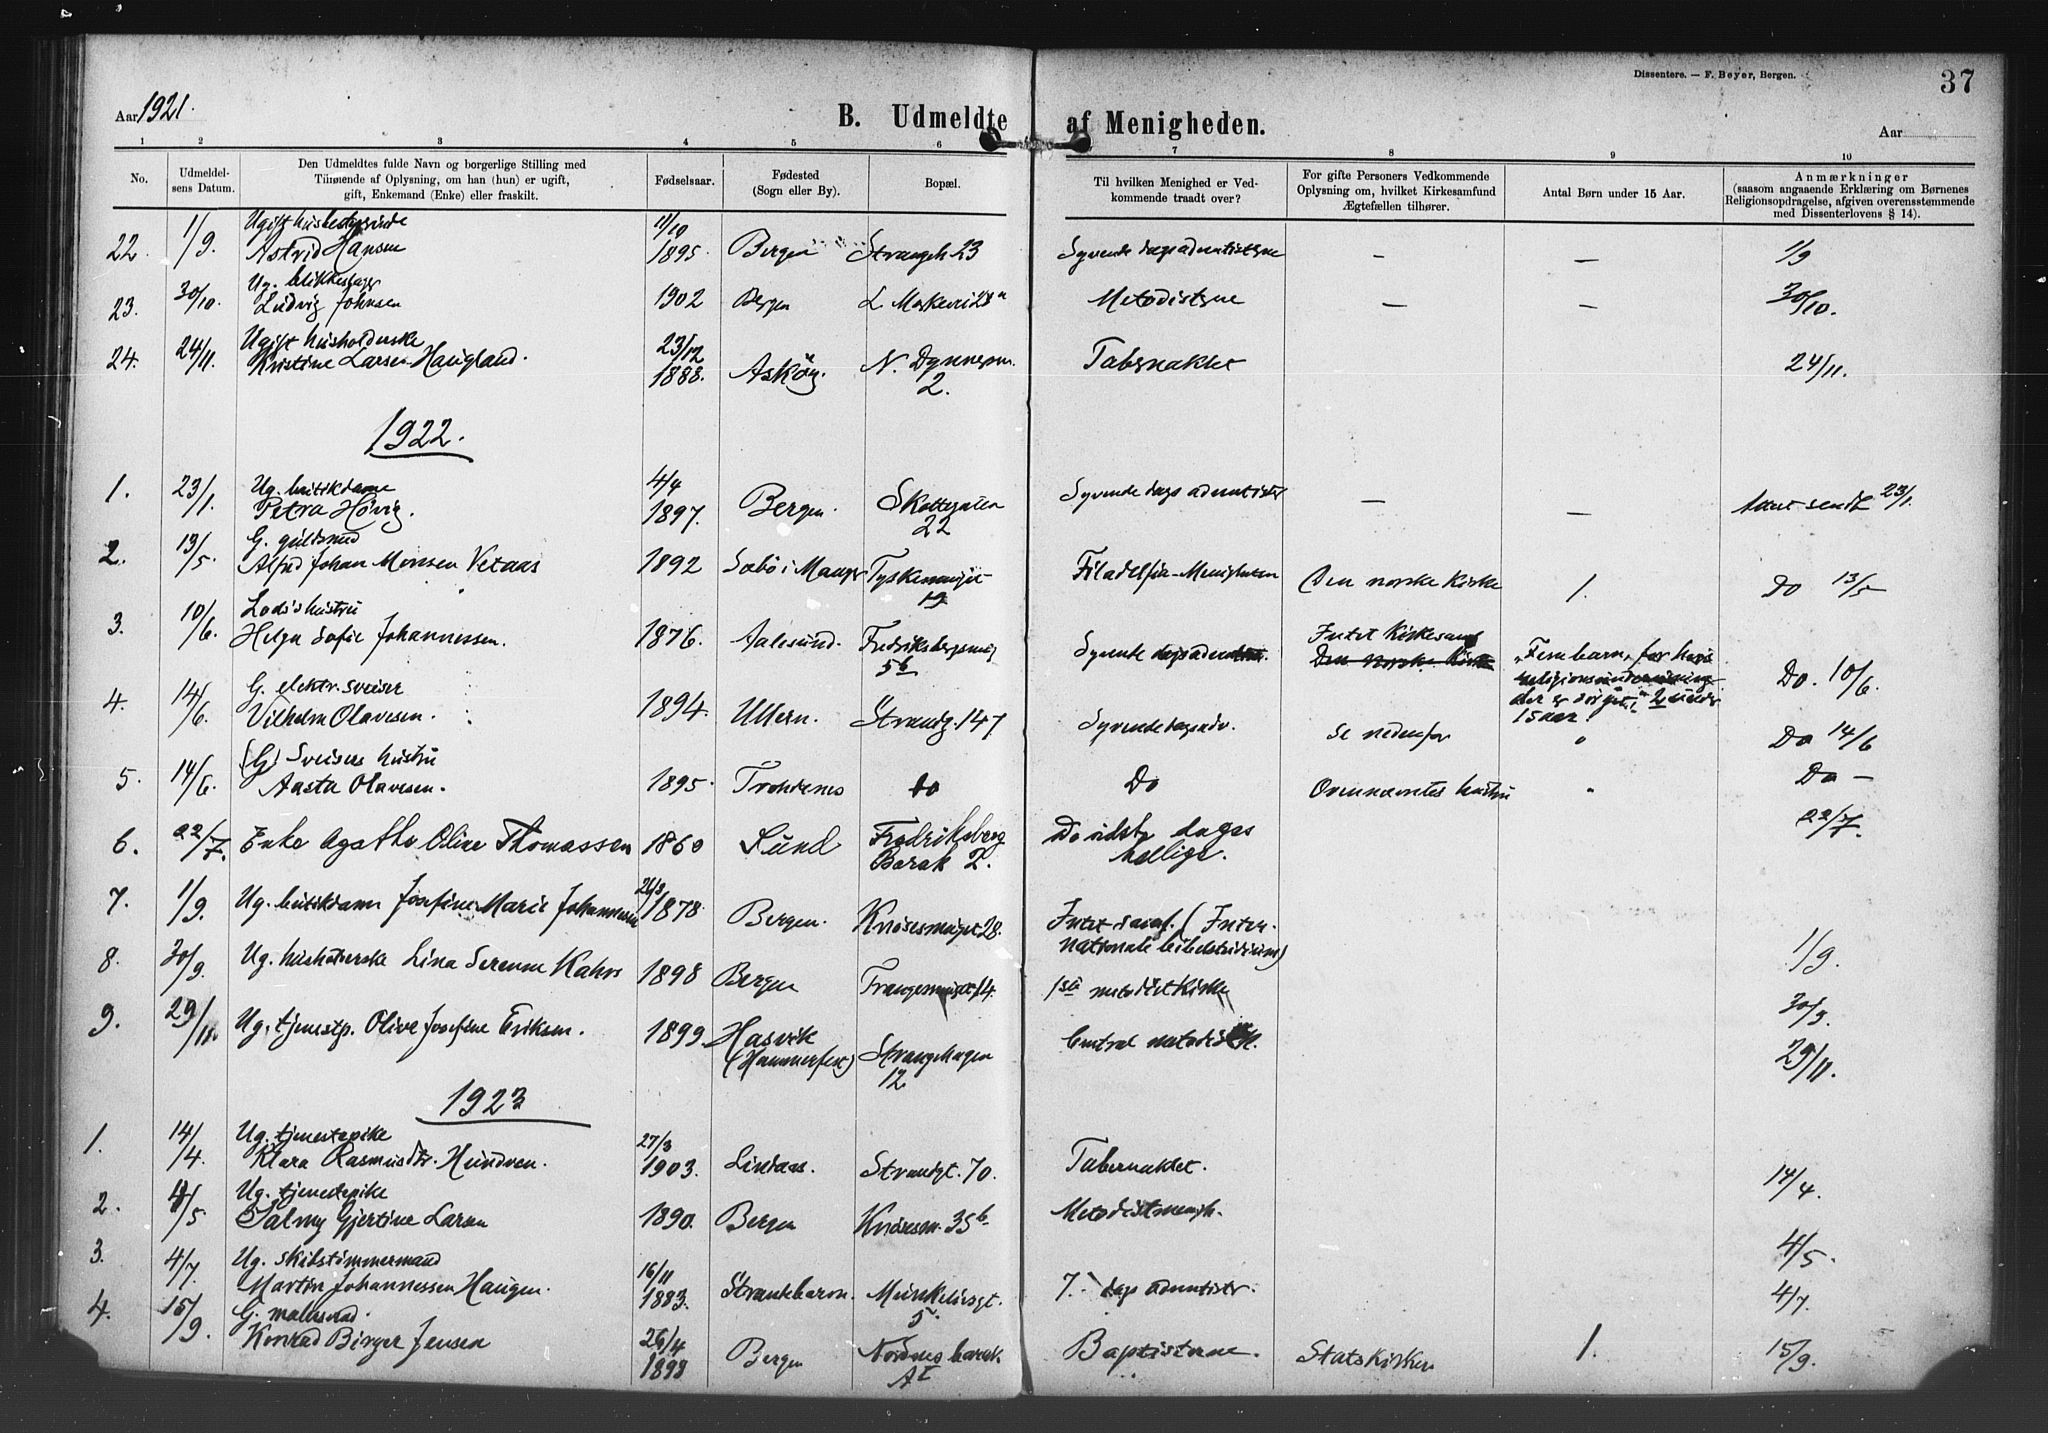 Dissentere. — F. Beyer, Bergen.
37
Aar 1921.
B. Udmeldte af Menigheden.
Aar
1 2 3 4 5 6 7 8 9 10
No.
Udmeldel-
sens Datum.
Den Udmeldtes fulde Navn og borgerlige Stilling med
Tilføiende af Oplysning, om han (hun) er ugift,
gift, Enkemand (Enke) eller fraskilt.
Fødselsaar.
Fødested
(Sogn eller By).
Bopæl.
Til hvilken Menighed er Ved-
kommende traadt over?
For gifte Personers Vedkommende
Oplysning om, hvilket Kirkesamfund
Ægtefællen tilhører.
Antal Børn under 15 Aar.
Anmærkninger
(saasom angaaende Erklæring om Børnenes
Religionsopdragelse, afgiven overensstemmende
med Dissenterlovens § 14).
Ugift husbestyrerinde 11/10
22. 1/9. Astrid Hansen 1895. Bergen Strangeh 23 Syvende dags adventisterne — — 1/9
Ug. blikkenslager
23. 30/10. Ludvig Johnsen 1902 Bergen L. Markevei 28a Metodisterne — — 30/10.
Ugift husholderske 23/12
24. 24/11. Kristine Larsen Haugland. 1888. Askøy. N. Dynnesm. 2. Tabernaklet 24/11.
1922.
Ug. butikdame 4/4
1. 23/1. Petra Høvig. 1897. Bergen. Skottegaten 22 Syvende dags adventister — — Attest sendt 23/1.
G. guldsmed
2. 13/5. Alfred Johan Monsen Vetaas 1892 Sæbø i Manger Tyskesmuget 19 Filadelfia-Menigheten Den norske kirke 1. Do 13/5
Lodshustru
3. 10/6. Helga Sofie Johannessen. 1876. Aalesund. Fredriksbergsmug 5b Syvende dags advent. Intet kirkesamf. Den norske kirke
"Fem barn, for hvis
religionsundervisning
der er sørget" 2 under
15 aar!
Do. 10/6.
G. elektr. sveiser
4. 14/6. Vilhelm Olavesen. 1894. Ullern. Strandg. 147 Syvendedagsadv. Se nedenfor " Do 14/6
(G) Sveisers hustru
5. 14/6. Aasta Olavesen. 1895. Trondenes do Do Ovennævntes hustru " Do —
6. 22/7. Enke Agathe Oline Thomassen 1860 Lund Fredriksberg Barak 2. De sidste dages hellige. 22/7.
7. 1/9. Ug. butikdame Josefine Marie Johannessen 26/3 1878. Bergen. Knøsesmuget 28. Intet samf. (Inter-
nationale bibelstudium) 1/9.
8. 30/9. Ug. husholderske Lina Serenne Kahrs 1898 Bergen Trangesmuget 14. 1ste metodistkirke 30/9.
9. 29/11. Ug. tjenestp. Olive Josefine Eriksen. 1899. Hasvik (Hammerfest) Strangehagen 12 Central metodistk. 29/11.
1923
Ug. tjenestepike 27/3
1. 14/4. Klara Rasmusdtr. Hundven. 1903. Lindaas. Strandgt. 70. Tabernaklet. 14/4.
Ug. tjenestepike
2. 4/5 Palmy Gjertine Larsen 1890. Bergen Knøsesm. 35b. Metodistmengh. 4/5.
Ug. skibstømmermand 16/11
3. 4/7. Martin Johannessen Haugen. 1883. Strandebarm. Munkelivsgt. 5. 7. dags adventister. 4/7.
G. malersvend. 26/4
4. 15/9. Konrad Birger Jensen 1898 Bergen Nordnes barak A I Baptisterne. Statskirken 1. 15/9.